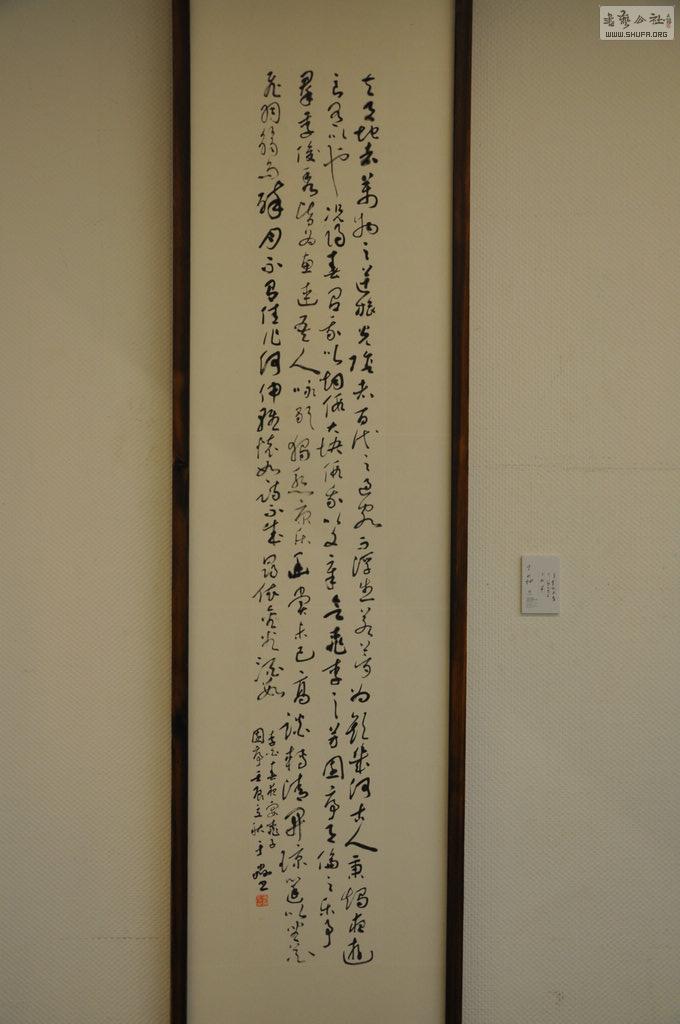 書藝公社
WWW.SHUFA.ORG
夫天地者萬物之逆旅光陰者百代之過客而浮生若夢為歡幾何古人秉燭夜遊
良有以也况陽春召我以烟景大块假我以文章會桃李之芳園序天倫之樂事
羣季俊秀皆為惠連吾人詠歌獨慙康樂幽賞未已高談轉清開瓊筵以坐花
飛羽觴而醉月不有佳作何伸雅懷如詩不成罰依金谷酒數
李白春夜宴桃李
園序壬辰立秋于